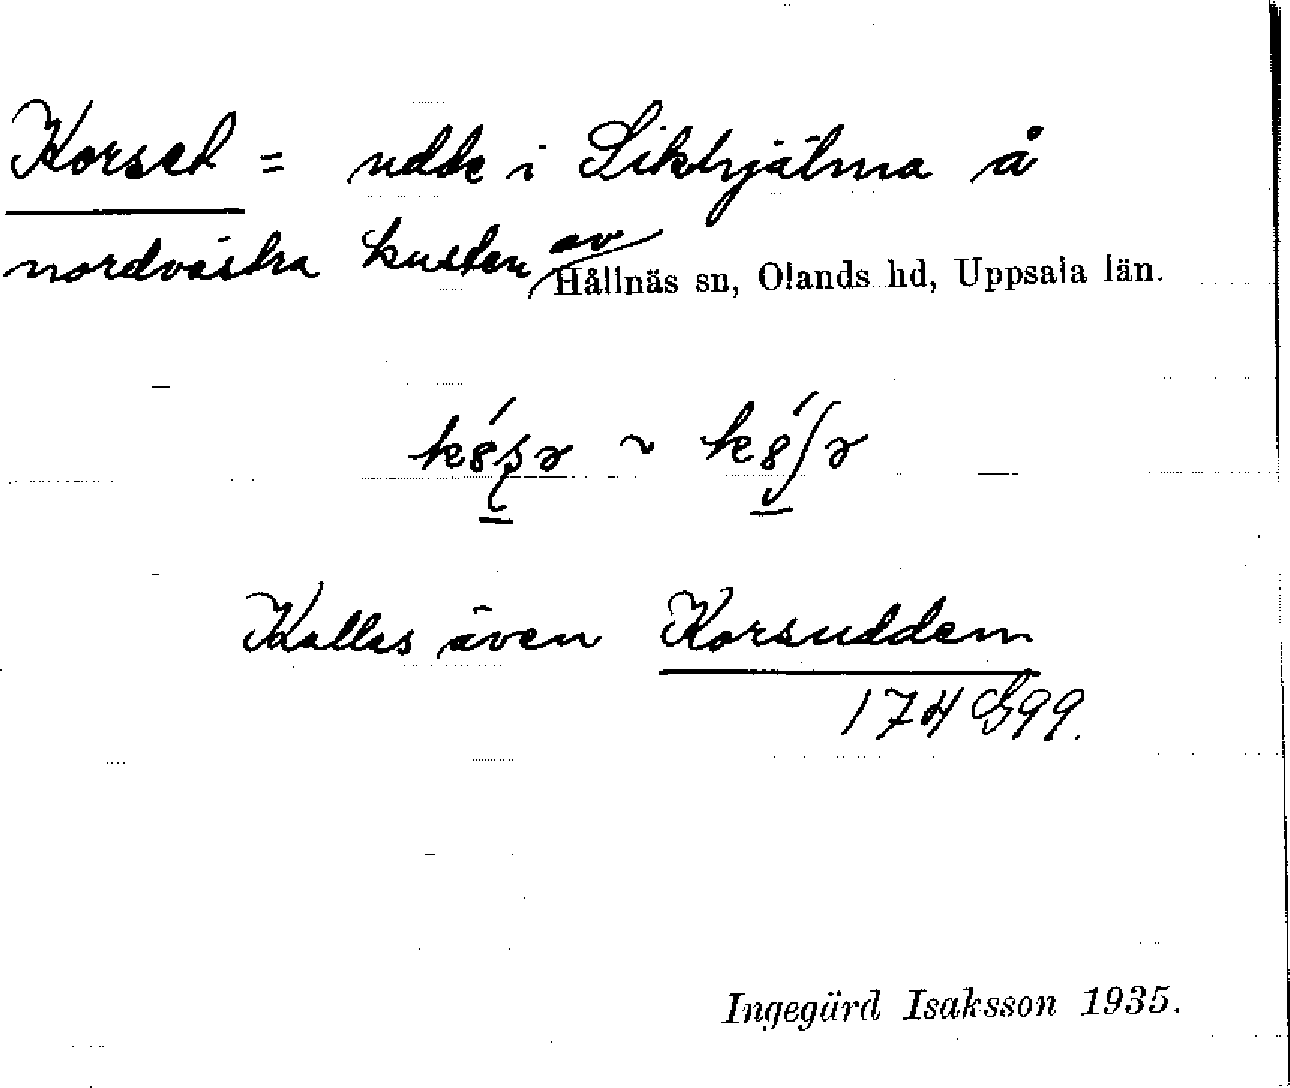 Korset = udde i Sikhjälma å
nordvästra kusten av
Hållnäs sn, Olands hd, Uppsala län.
Kallas även Korsudden
174 G99.
Ingegärd Isaksson 1935.